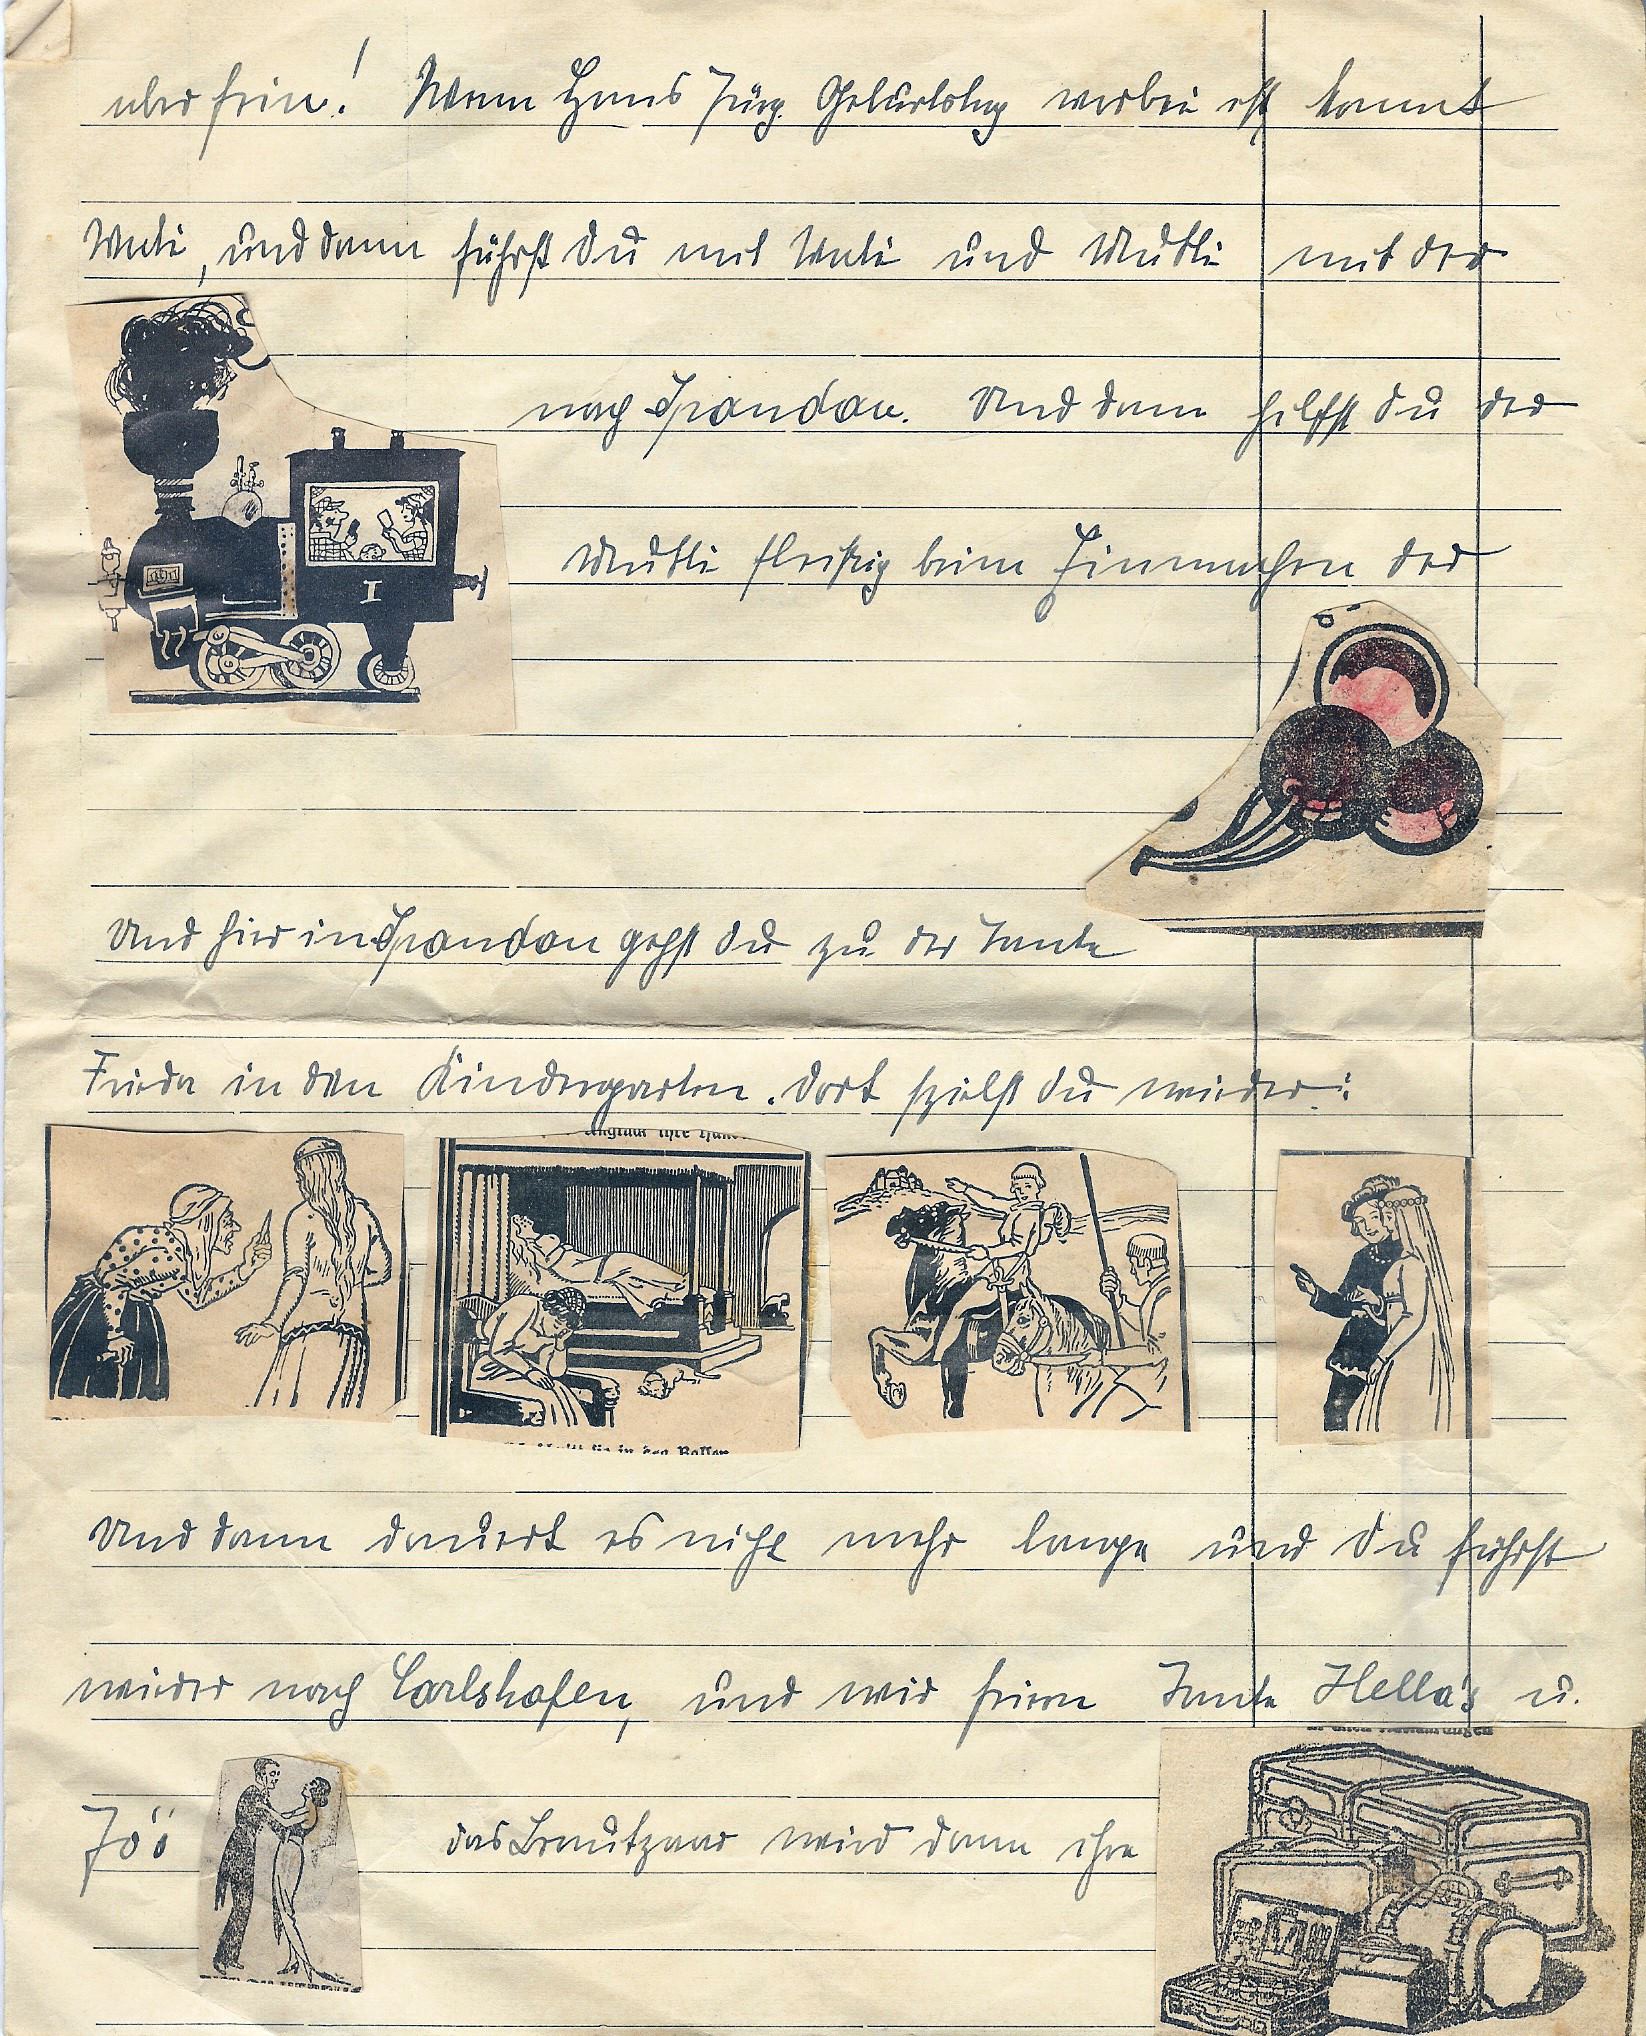 aber fein! Wenn Hans Jürg. Geburtstag vorbei ist kommt
Vati, und dann fährst du mit Vati und Mutti mit der
nach Spandau. Und dann hilfst du der
I
Mutti fleißig beim Einmachen der
Und hier in Spandau gehst du zu der Tante
Frieda in den Kindergarten. Dort spielst du wieder:
Und dann dauert es nicht mehr lange und du fährst
wieder nach Carlshafen, und wir feiern Tante Hella's u.
das Brautpaar wird dann ihre